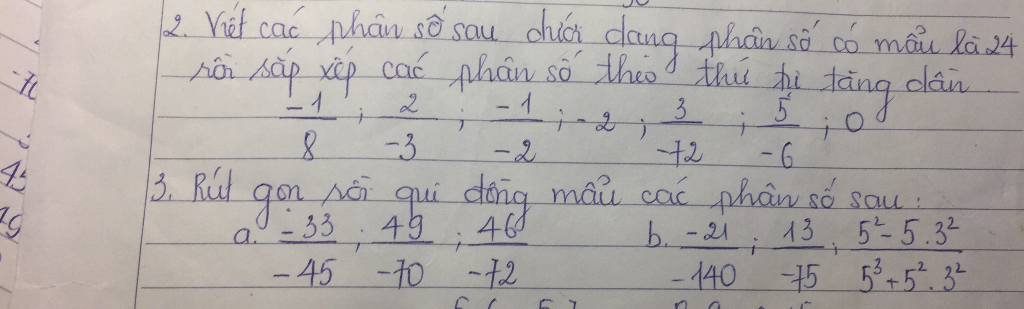 2. Viết các phân số sau dưới dạng phân số có mẫu là 24
rồi sắp xếp các phân số theo thứ tự tăng dần
-1/8 ; 2/-3 ; -1/-2 ; -2 ; 3/-72 ; 5/-6 ; 0
3. Rút gọn rồi qui đồng mẫu các phân số sau :
a. -33/-45 ; 49/-70 ; 46/-72 b. -21/-140 ; 13/-75 ; 5² - 5 . 3²/5³ + 5² . 3²